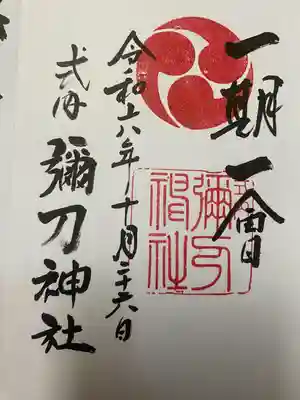 一期一會
令和六年十月二十六日
式内 彌刀神社
彌刀
神社